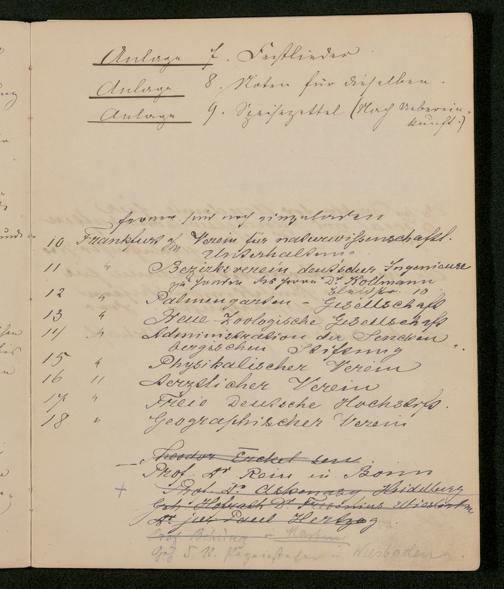 Anlage 7. Festlieder
Anlage 8. Noten für dieselben.
Anlage 9. Speisezettel (Nach Ueberein-
kunft.)
ferner sind noch einzuladen
10 Frankfurt a/M Verein für naturwissenschaftl.
Unterhaltung
11 " Bezirksverein deutscher Ingenieure
zu Handen des Herrn Dr Kollmann
12 " Palmengarten-Gesellschaft
13 " Neue Zoologische Gesellschaft
14 " Administration der Sencken
bergischen Stiftung
15 " Physikalischer Verein
16 " Aerztlicher Verein
17 " Freie Deutsche Hochstift.
18 " Geographischer Verein
Theodor Erckel sen.
Prof. Dr Rein in Bonn
+ Prof. Dr. Askenasy Heidelberg
Geh. Hofrath Dr. Fresenius Wiesbaden
Dr jur Paul Hertzog
Prof
Wiesbaden